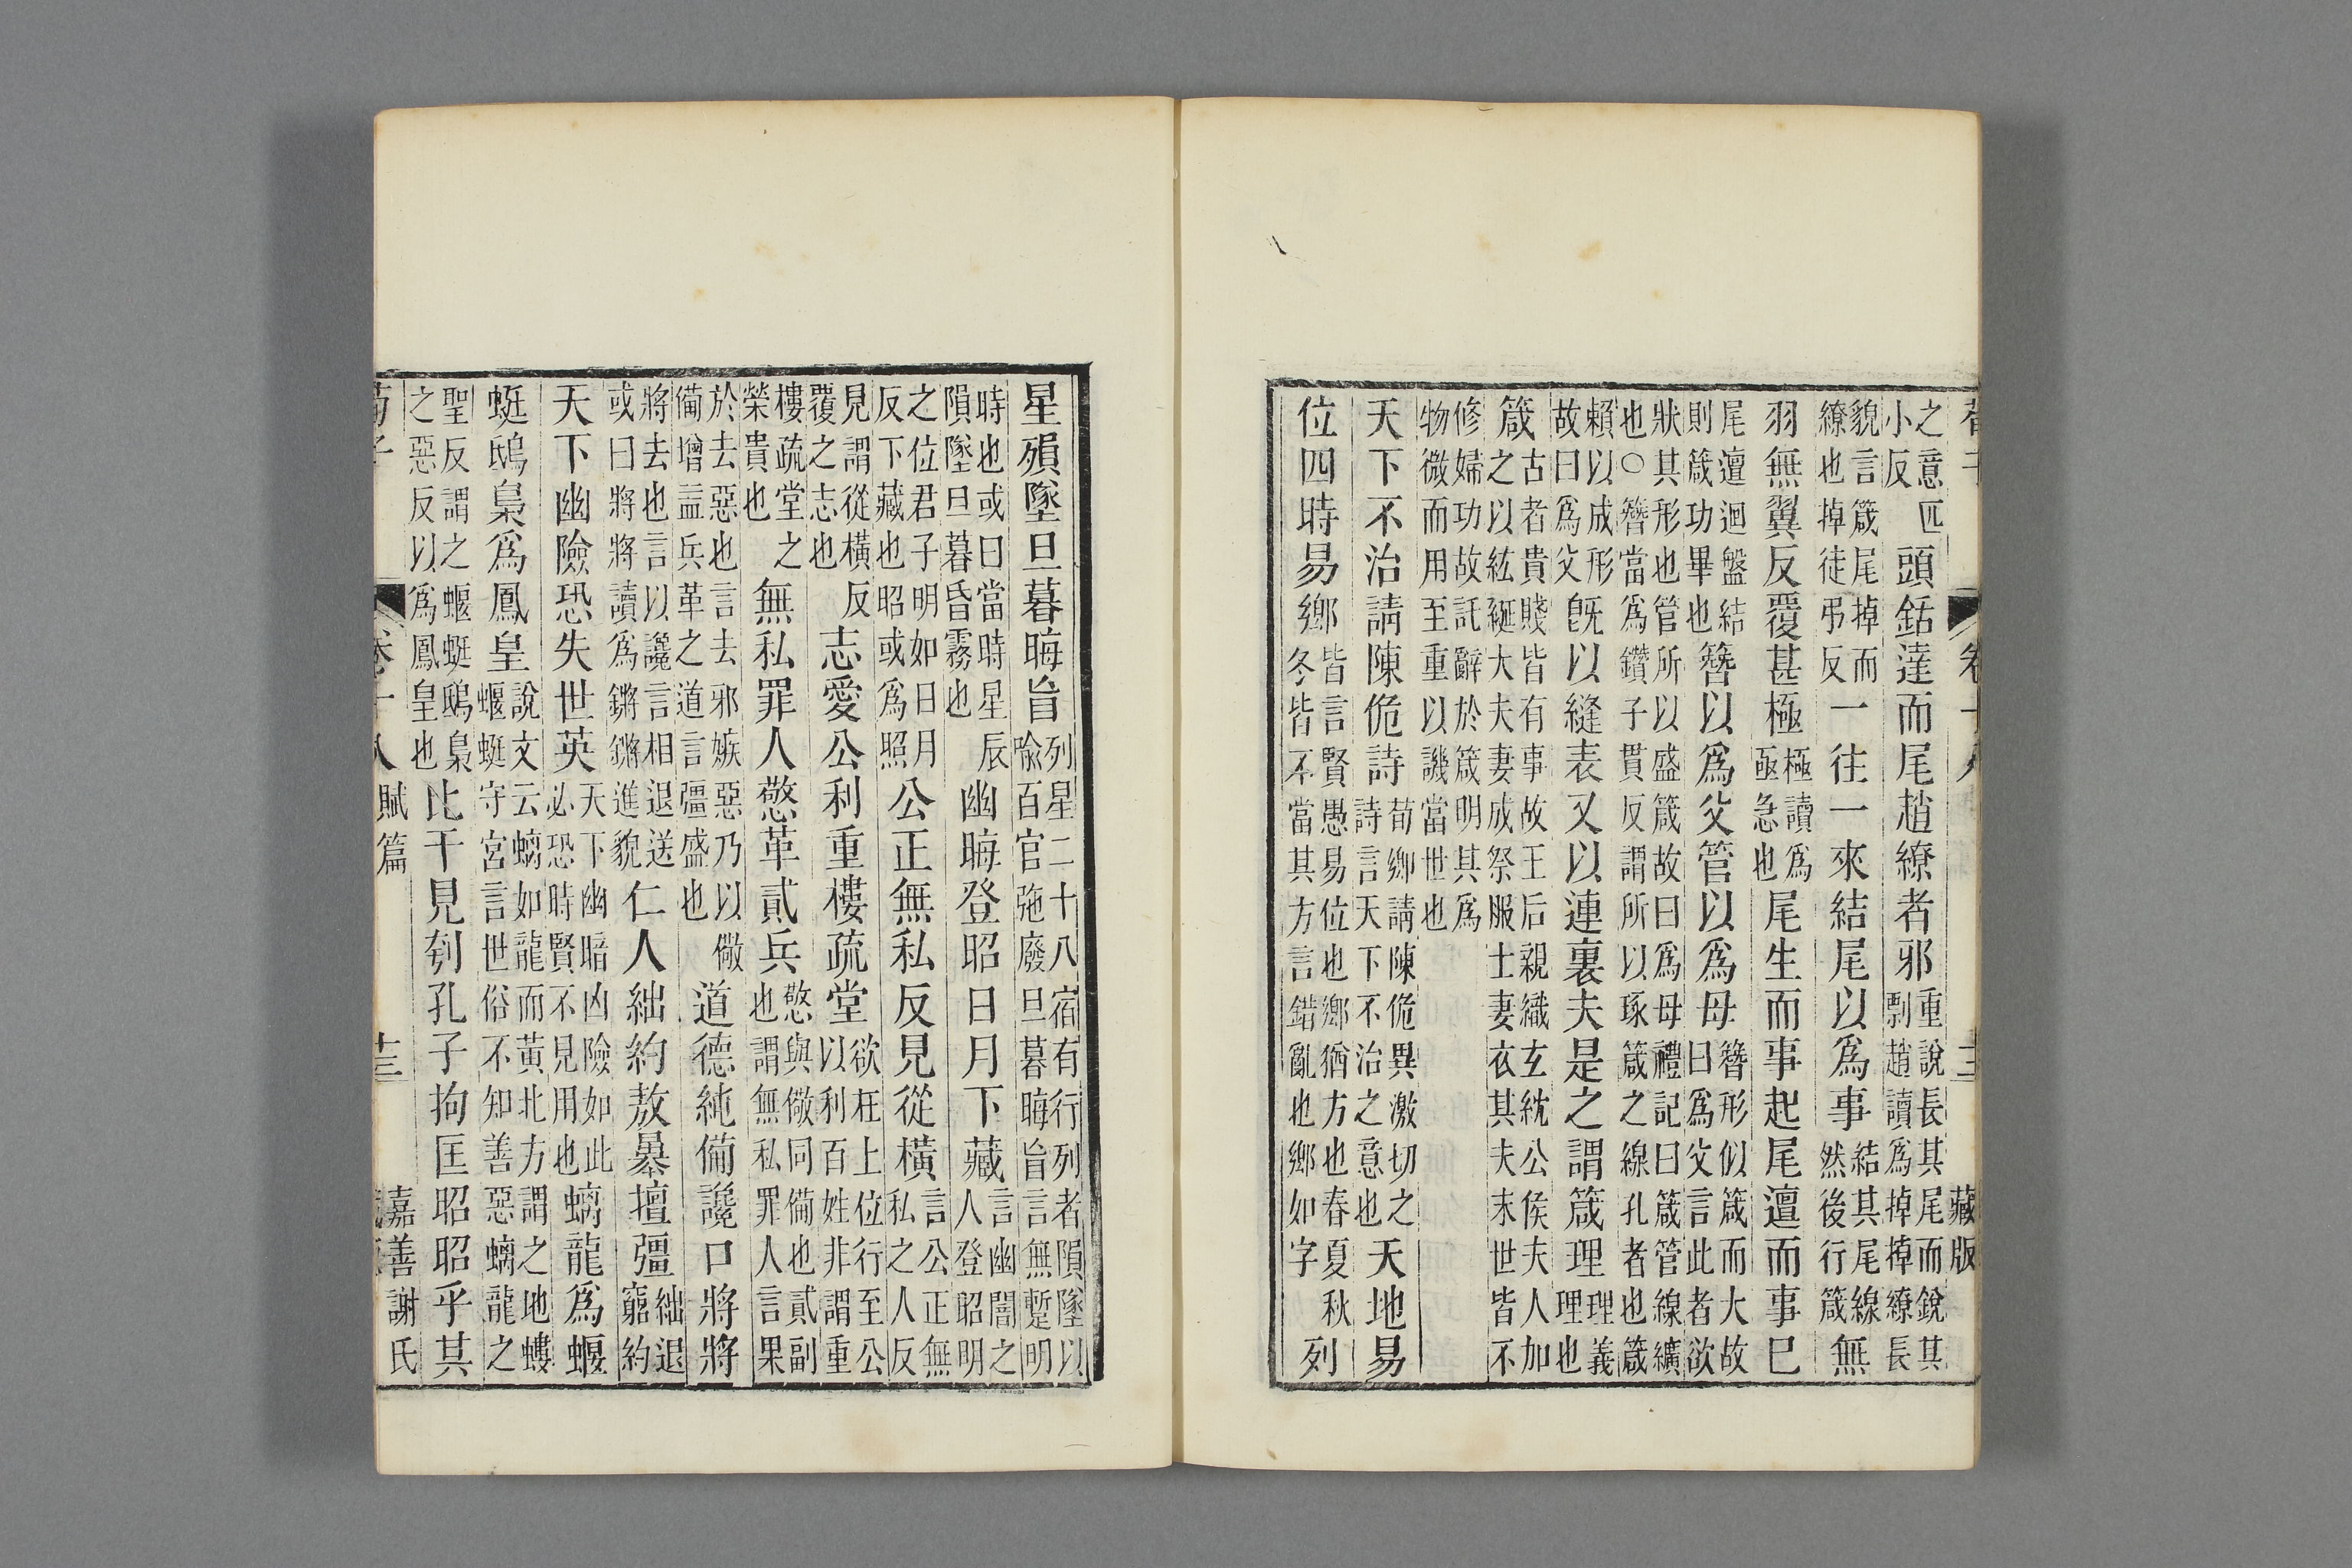 荀子 卷十八 十二 藏版
之意匹小反頭銛達而尾趙繚者邪重說長其尾而銳其剽趙讀爲掉掉繚長
貌言箴尾掉而繚也掉徒弔反一往一來結尾以爲事結其尾線然後行箴無
羽無翼反覆甚極極讀爲亟急也尾生而事起尾邅而事巳
尾邅迴盤結則箴功畢也簪以爲父管以爲母簪形似箴而大故曰爲父言此者欲
狀其形也管所以盛箴故曰爲母禮記曰箴管線纊也○簪當爲鑽子貫反謂所以琢箴之線孔者也箴
賴以成形故曰爲父旣以縫表又以連裏夫是之謂箴理理義理也
箴古者貴賤皆有事故王后親織玄紞公侯夫人加之以紘綖大夫妻成祭服士妻衣其夫末世皆不
修婦功故託辭於箴明其爲物微而用至重以譏當世也
天下不治請陳佹詩荀卿請陳佹異激切之詩言天下不治之意也天地易
位四時易鄉皆言賢愚易位也鄉猶方也春夏秋冬皆不當其方言錯亂也鄉如字列
星殞墜旦暮晦盲列星二十八宿有行列者隕墜以喻百官弛廢旦暮晦盲言無蹔明
時也或曰當時星辰隕墜旦暮昏霧也幽晦登昭日月下藏言幽闇之人登昭明
之位君子明如日月反下藏也昭或爲照公正無私反見從橫言公正無私之人反
見謂從橫反覆之志也志愛公利重樓疏堂欲枉上位行至公以利百姓非謂重
樓疏堂之榮貴也無私罪人憼革貳兵憼與儆同備也貳副也謂無私罪人言果
於去惡也言去邪嫉惡乃以儆備增益兵革之道言彊盛也道德純備讒口將將
將去也言以讒言相退送或曰將將讀爲鏘鏘進貌仁人絀約敖暴擅彊絀退窮約
天下幽險恐失世英天下幽暗凶險如此必恐時賢不見用也螭龍爲蝘
蜓鴟梟爲鳳皇說文云螭如龍而黃北方謂之地螻蝘蜓守宮言世俗不知善惡螭龍之
聖反謂之蝘蜓鴟梟之惡反以爲鳳皇也比干見刳孔子拘匡昭昭乎其
荀子 卷十八 賦篇 十三 嘉善謝氏